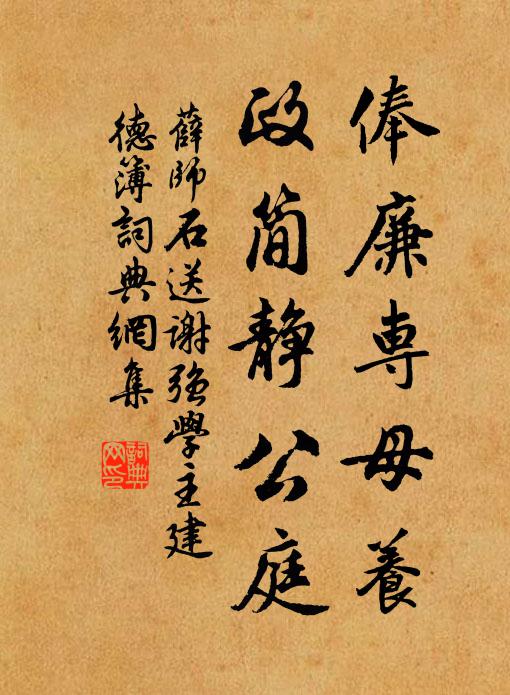 俸廉専母養
政简靜公庭
薛師石送謝强學主建
德簿詞典網集
詞典网印